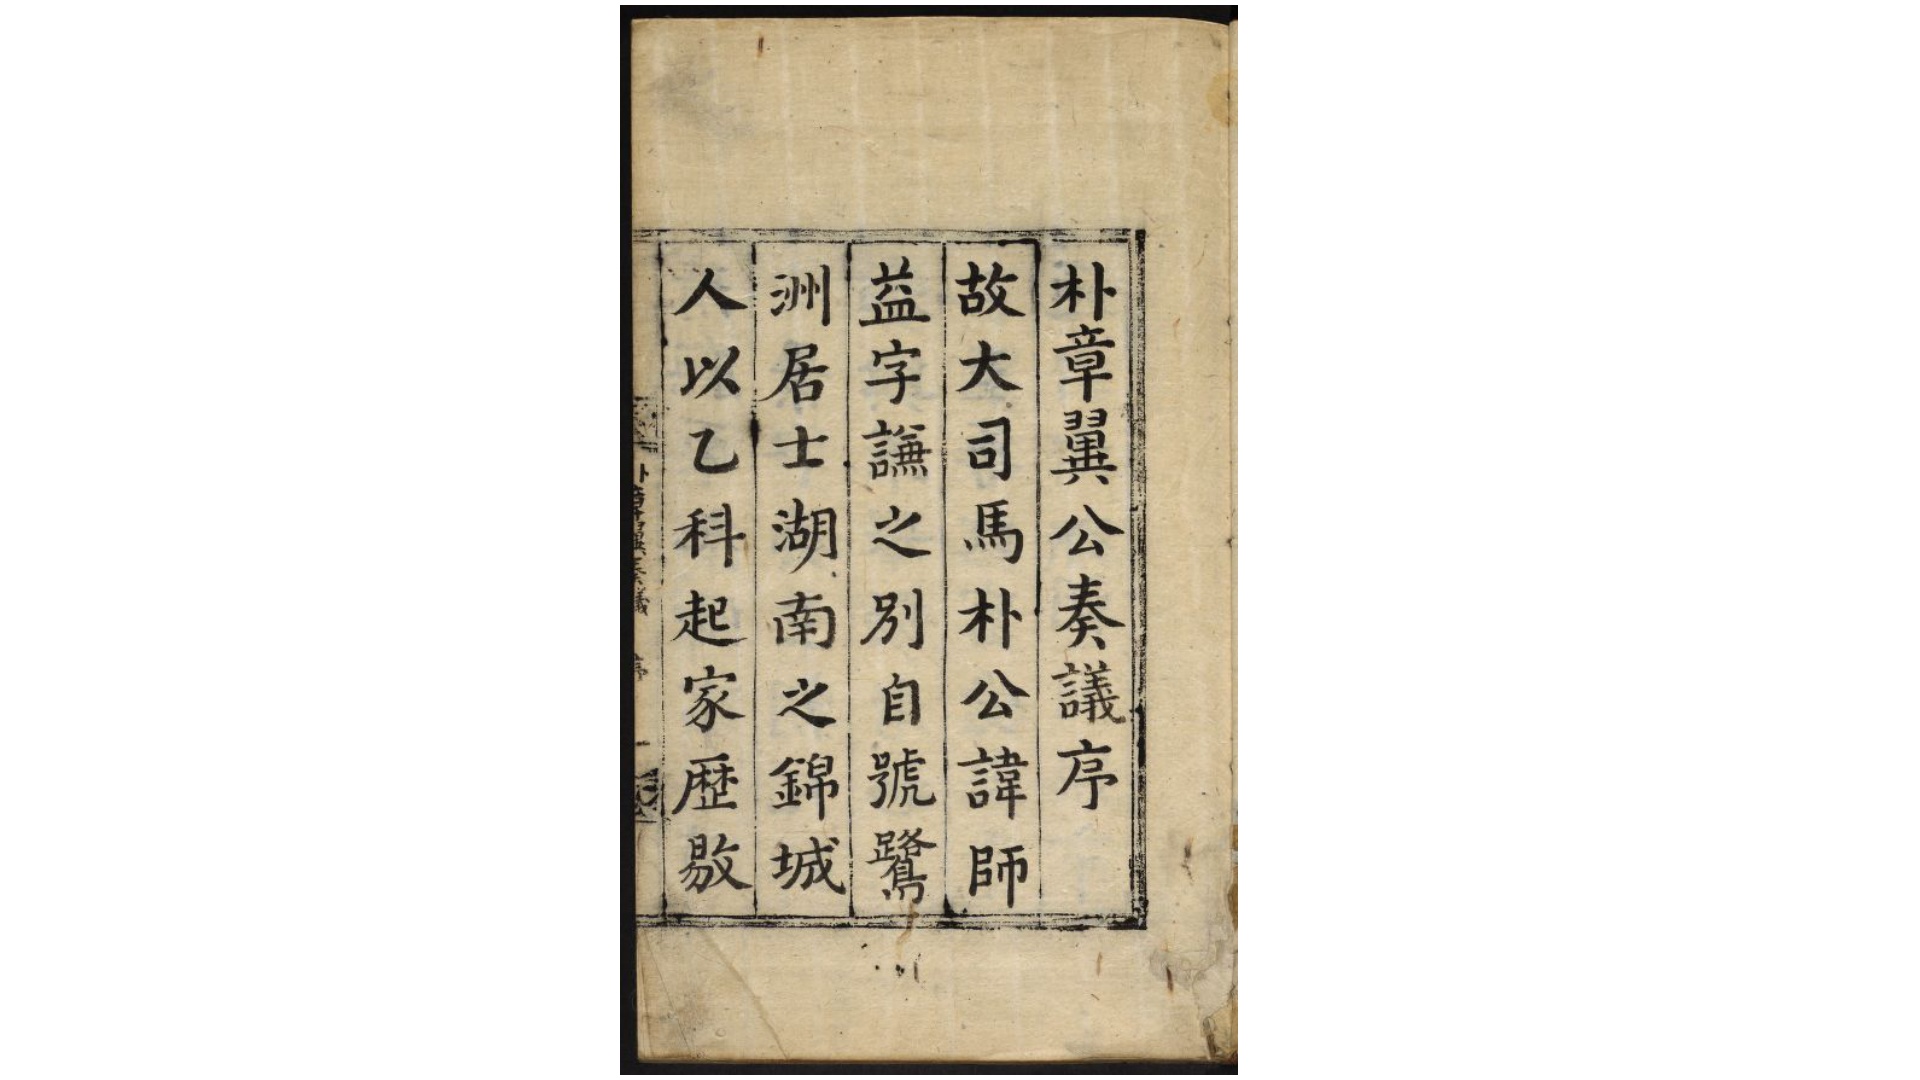 朴章翼公奏議序
故大司馬朴公諱師
益字謙之別自號鷺
洲居士湖南之錦城
人以乙科起家歷敭